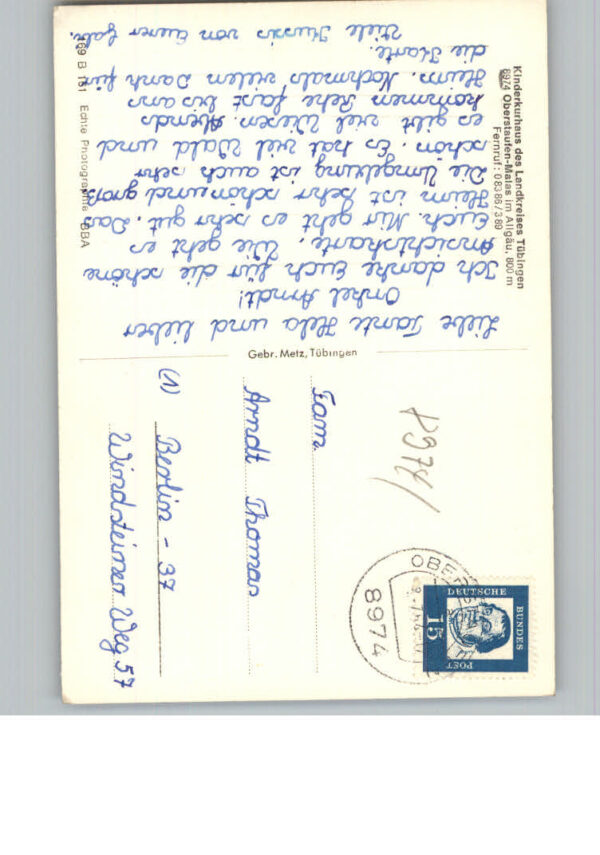 Kinderkurhaus des Landkreises Tübingen
8974 Oberstaufen-Malas im Allgäu, 800 m
Fernruf: 08386/389
Liebe Tante Hela und lieber
Onkel Arndt!
Ich danke Euch für die schöne
Ansichtskarte. Wie geht es
Euch. Mir geht es sehr gut. Das
Heim ist sehr schön und groß
Die Umgebung ist auch sehr
schön. Es hat viel Wald und
es gibt viel Wiesen. Abends
kommen Rehe fast bis ans
Heim. Nochmals vielen Dank für
die Karte.
Viele Grüsse von Eurer Gabi.
169 B 151 Echte Photographie BBA
Gebr. Metz, Tübingen
Fam
Arndt Thomas
(1) Berlin - 37
Windsteiner Weg 57
8974
8974
DEUTSCHE
BUNDES
POST
15